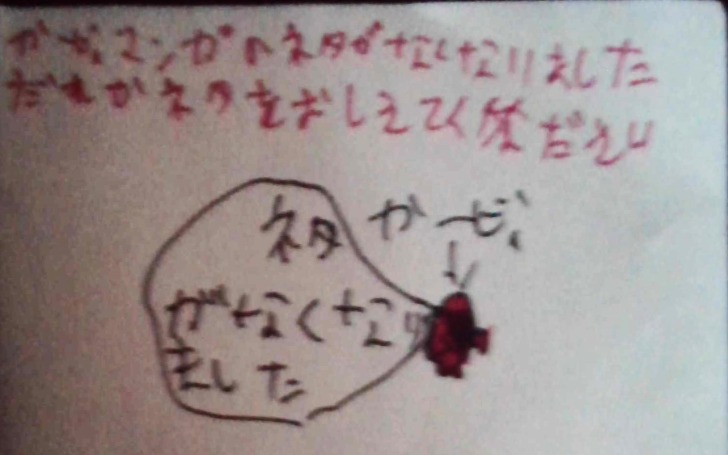 マンガのネタがなくなりました
だれかネタをおしえてください
ネタ
カービィ
がなくなり
ました